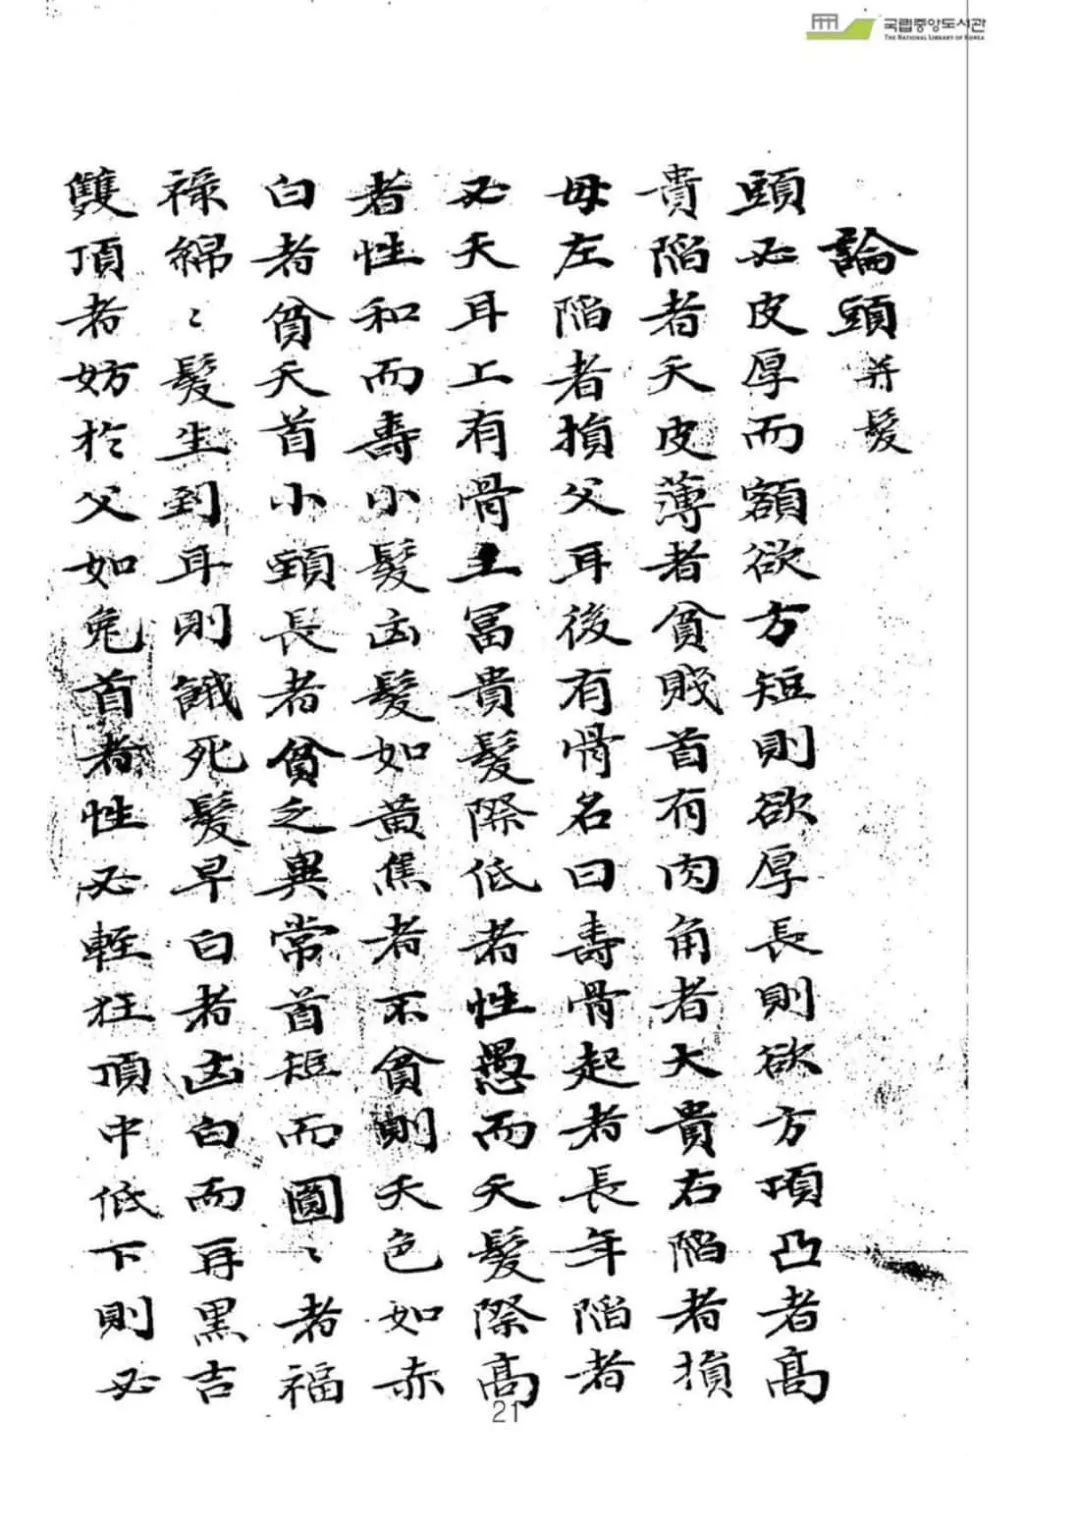 국립중앙도서관
THE NATIONAL LIBRARY OF KOREA
論頭 并髮
頭必皮厚而額欲方短則欲厚長則欲方項凸者高
貴陷者夭皮薄者貧賤首有肉角者大貴右陷者損
母左陷者損父耳後有骨名曰壽骨起者長年陷者
必夭耳上有骨主冨貴髮際低者性愚而夭髮際高
者性和而壽小髮凶髮如黃焦者不貧則夭色如赤
白者貧夭首小頸長者貧乏異常首短而圓〻者福
祿綿〻髮生到耳則餓死髮早白者凶白而再黑吉
雙頂者妨於父如兔首者性必輕狂頂中低下則必
21